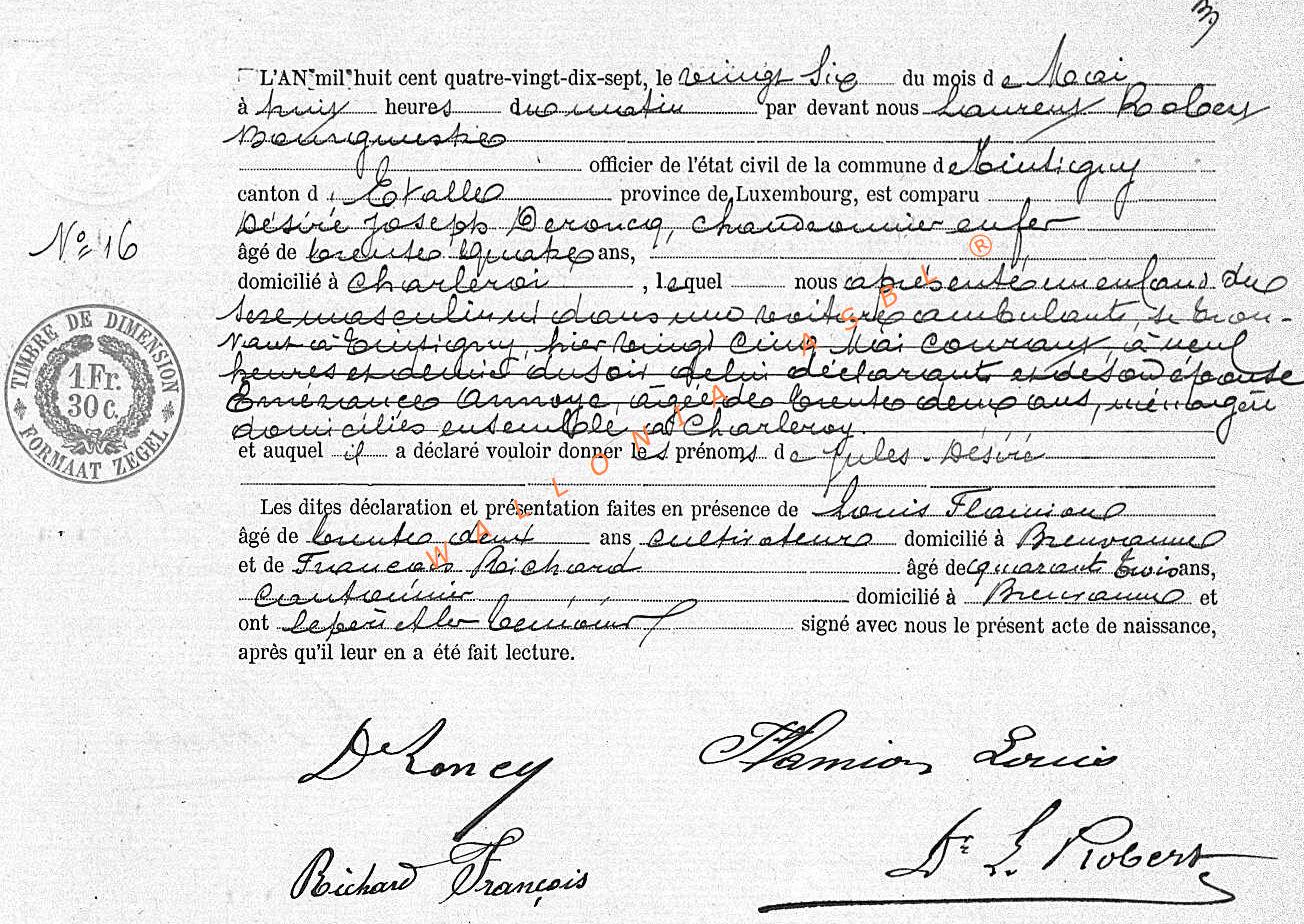 L'AN mil huit cent quatre-vingt-dix-sept, le vingt six du mois de Mai
à huit heures du matin par devant nous Laurent Robert
Bourgmestre
officier de l'état civil de la commune de Tintigny
canton d'Etalle province de Luxembourg, est comparu
Désiré Joseph Deroncq, chaudronnier en fer
N° 16
âgé de trente quatre ans,
domicilié à Charleroi, lequel nous a présenté un enfant du
sexe masculin né dans une voiture ambulante, se trou-
vant à Tintigny, hier vingt cinq Mai courant, à neuf
heures et demie du soir de lui déclarant et de son épouse
Emérance Annoye, âgée de trente deux ans, ménagère
domiciliés ensemble à Charleroy.
et auquel il a déclaré vouloir donner les prénoms de Jules-Désiré
Les dites déclaration et présentation faites en présence de Louis Flamion
âgé de trente deux ans cultivateur domicilié à Breuvanne
et de François Richard âgé de quarante trois ans,
cantonnier domicilié à Breuvanne et
ont le père et les témoins signé avec nous le présent acte de naissance,
après qu'il leur en a été fait lecture.
TIMBRE DE DIMENSION
1 Fr.
30 c.
FORMAAT ZEGEL
WALLONIA ASBL ®
Flamion Louis
Richard François
Dr L. Robert